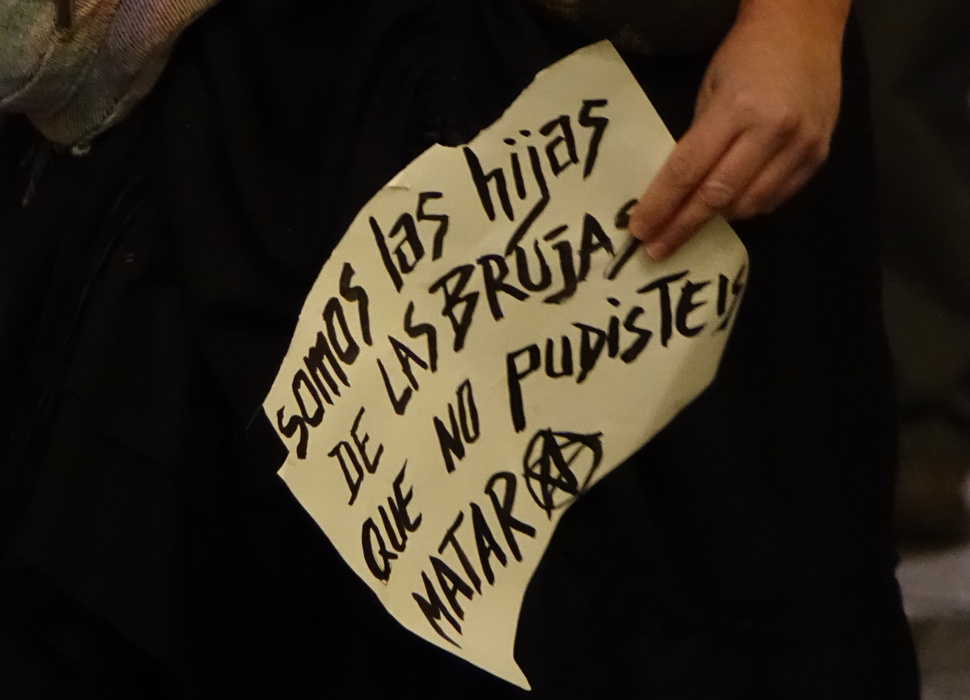 somos las hijas
DE LAS BRUJAS
QUE NO PUDISTEIS
MATAR Ⓐ